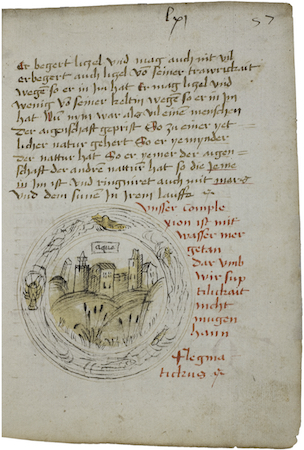 lxi 57
Er begert lützel vnd mag auch nit vil
erbegert auch lützel von seiner trawrickait
wegen so er in im hat Er mag lützel vnd
wenig von seiner keltin wegen so er in im
hat Wie nun war als vil eine menschen
der aigenschaft geprist So zu einer yet
licher natur gehört So er ye minder
der natur hat So er ye mer der aigen
schaft der andre natur hat so die jene
in im ist vnd regniert auch mit
vnd dem sune in irem lauff
vnser comple
xion ist mit
wasser mer
getan
dar vmb
wir sup
tilickait
nicht
mügen
hann
Flegma
tickus
aque